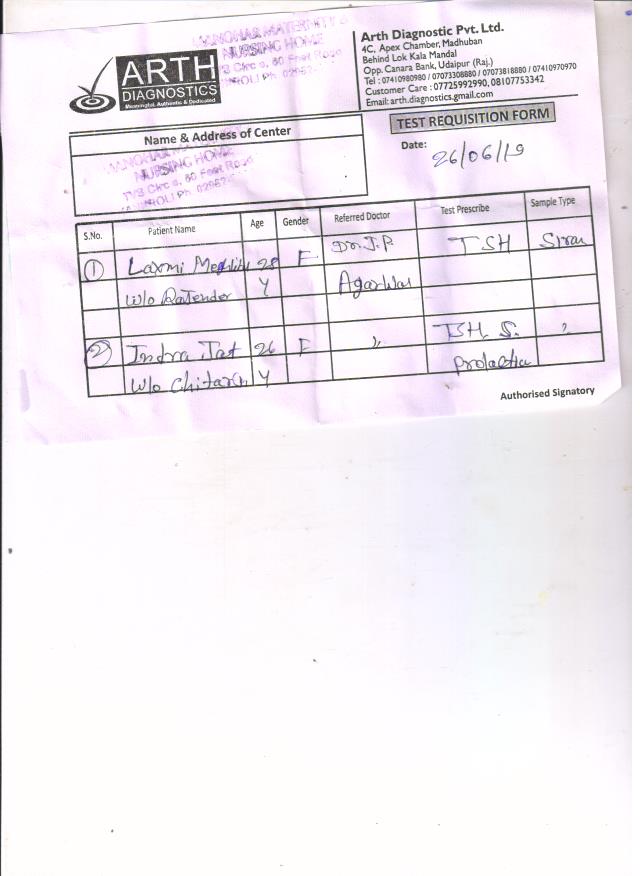 MANOHAR MATERNITY &
NURSING HOME
TVS Circle, 60 Feet Road
ARTH
DIAGNOSTICS
Meaningful, Authentic & Dedicated
Arth Diagnostic Pvt. Ltd.
4C, Apex Chamber, Madhuban
Behind Lok Kala Mandal
Opp. Canara Bank, Udaipur (Raj.)
Tel : 07410980980 / 07073308880 / 07073818880 / 07410970970
Customer Care : 07725992990, 08107753342
Email: arth.diagnostics.gmail.com
TEST REQUISITION FORM
Date: 26/06/19
Name & Address of Center
MANOHAR
NURSING HOME
60 Feet Road
S.No. Patient Name Age Gender Referred Doctor Test Prescribe Sample Type
1 Laxmi 28 F Dr. J.P. TSH
W/o Y Agarwal
2 Indra Jat 26 F " TSH, S. "
W/o Y
Authorised Signatory